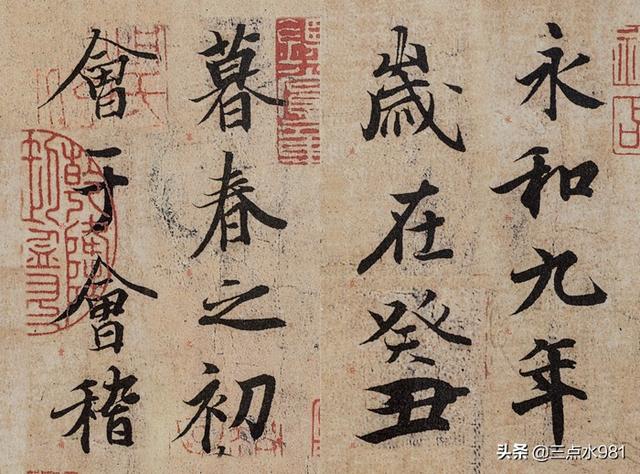 永和九年
歲在癸丑
暮春之初
會于會稽
头条 @三点水981